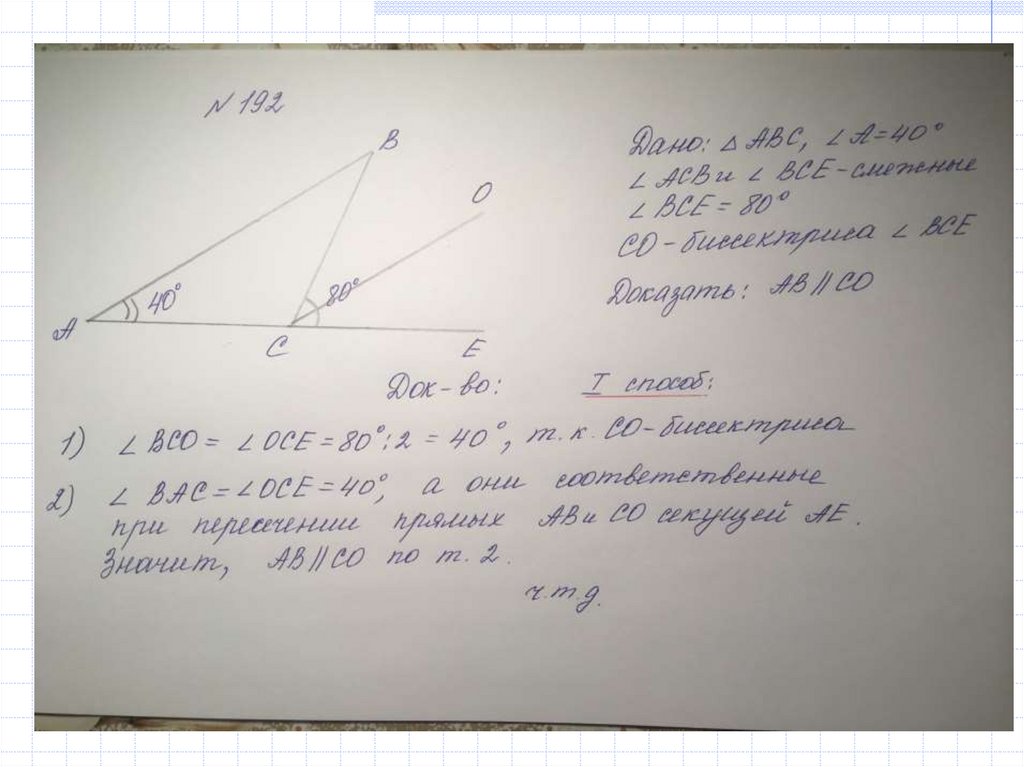 N 192
B
O
40°
80°
A
C
E
Дано: △ ABC, ∠A=40°
∠ ACB и ∠ BCE-смежные
∠ BCE = 80°
CO-биссектриса ∠ BCE
Доказать: AB || CO
Док-во: I способ:
1) ∠ BCO = ∠ OCE = 80°:2 = 40°, т.к. CO-биссектриса
2) ∠ BAC = ∠OCE = 40°, а они соответственные
при пересечении прямых AB и CO секущей AE.
Значит, AB || CO по т. 2.
ч.т.д.